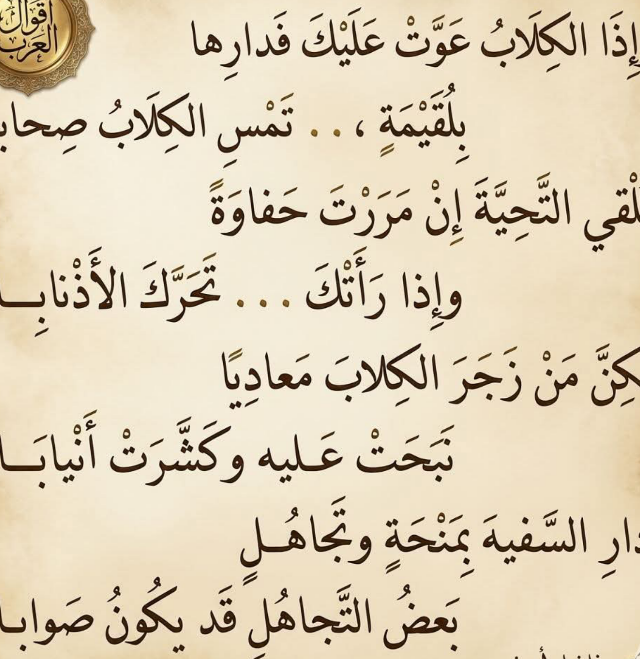 أقوال
العرب
إِذَا الكِلَابُ عَوَّتْ عَلَيْكَ فَدارِها
بِلُقَيْمَةٍ ، . . تَمْسِ الكِلَابُ صِحابـ
ـلْقي التَّحِيَّةَ إِنْ مَرَرْتَ حَفاوَةً
وإِذا رَأَتْكَ . . . تَحَرَّكَ الأَذْنابِــا
ـكِنَّ مَنْ زَجَرَ الكِلابَ مَعادِيًا
نَبَحَتْ عَـليه وكَشَّرَتْ أَنْيابَــا
دارِ السَّفيهَ بِمَنْحَةٍ وتَجاهُــلٍ
بَعضُ التَّجاهُلِ قَد يكُونُ صَوابـا